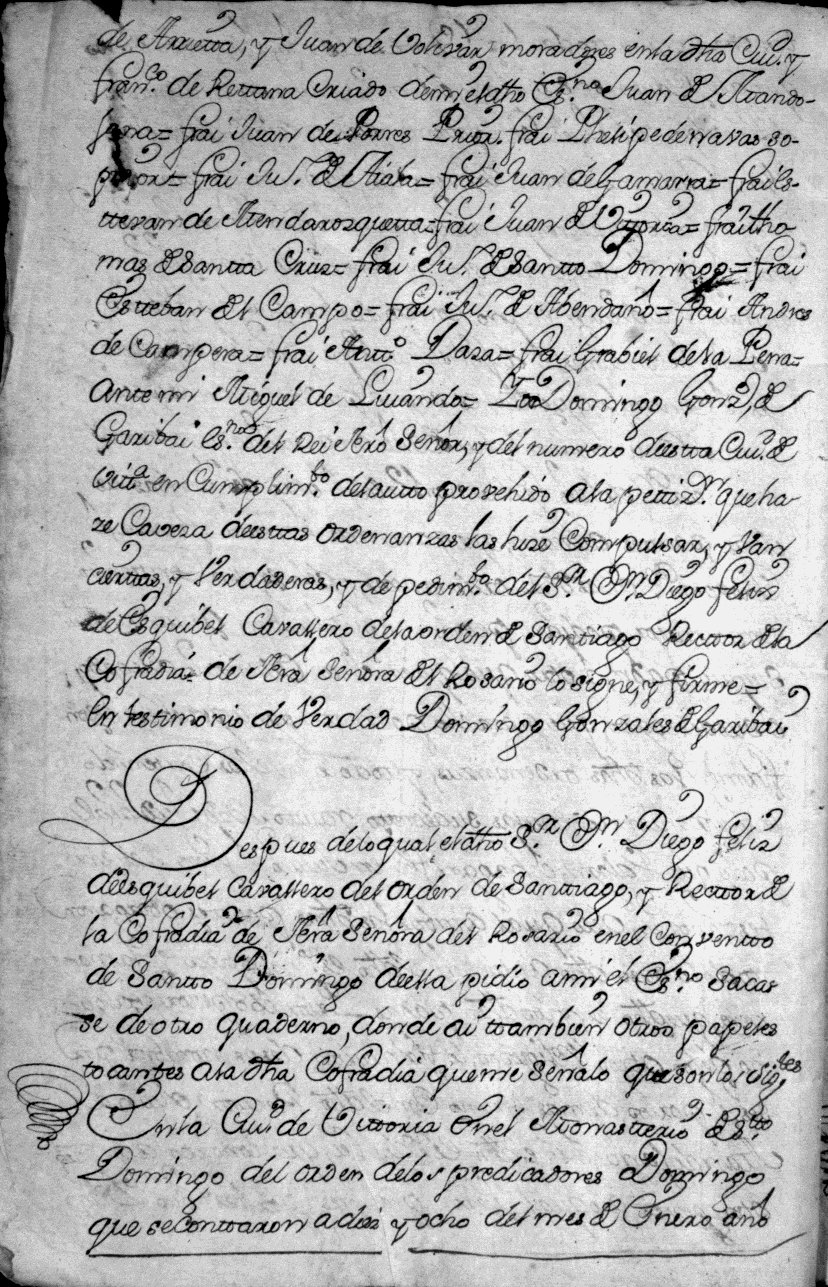 de Arrietta, y Juan de Volivar moradores enla dha Ciu.d y
fran.co de Rettana Criado demi el dho Es.no Juan de Mando-
jana= frai Juan de Porres Prior. frai Phelipe de navas so-
prior= frai Ju.o de Aiala= frai Juan de Gamarra= frai Es-
ttevan de Mendarozquetta= frai Juan de Vittoria= frai tho
mas de Santta Cruz= frai Ju.o de Santto Domingo= frai
Estteban del Campo= frai Ju.o de Abendaño= frai Andres
de Campera= frai Antt.o Daza= frai Grabiel dela Pena=
Ante mi Miguel de Luiando= Yo Domingo Gonz.z de
Garibai es.no del Rei Nro Señor, y del numero de estta Ciu.d de
Vitt.a en Cumplim.to del autto provehido ala pettiz.n que ha-
ze Caveza de esttas ordenanzas las hize Compulsar, y Van
ciertas, y Verdaderas, y de pedim.to del S.r D.n Diego feliz
de Esquibel Cavallero dela orden de Santiago Recttor de la
Cofradia de Nra Señora del Rosario lo signe, y firme=
En testimonio de Verdad Domingo Gonzales de Garibai
Despues delo qual el dho S.r D.n Diego feliz
de esquibel Cavallero del orden de Santtiago, y Recttor de
la Cofradia de Nra Señora del Rosario enel Conventto
de Santto Domingo de ella pidio ami el Es.no Sacas
se de otro quaderno, donde ai ttambien otros papeles
tocantes ala dha Cofradia que me Señalo que son los sig.tes
Enla Ciu.d de Vittoria Enel Monastterio de S.tto
Domingo del orden delos predicadores Domingo
que se conttaron a diez y ocho del mes de Enero año